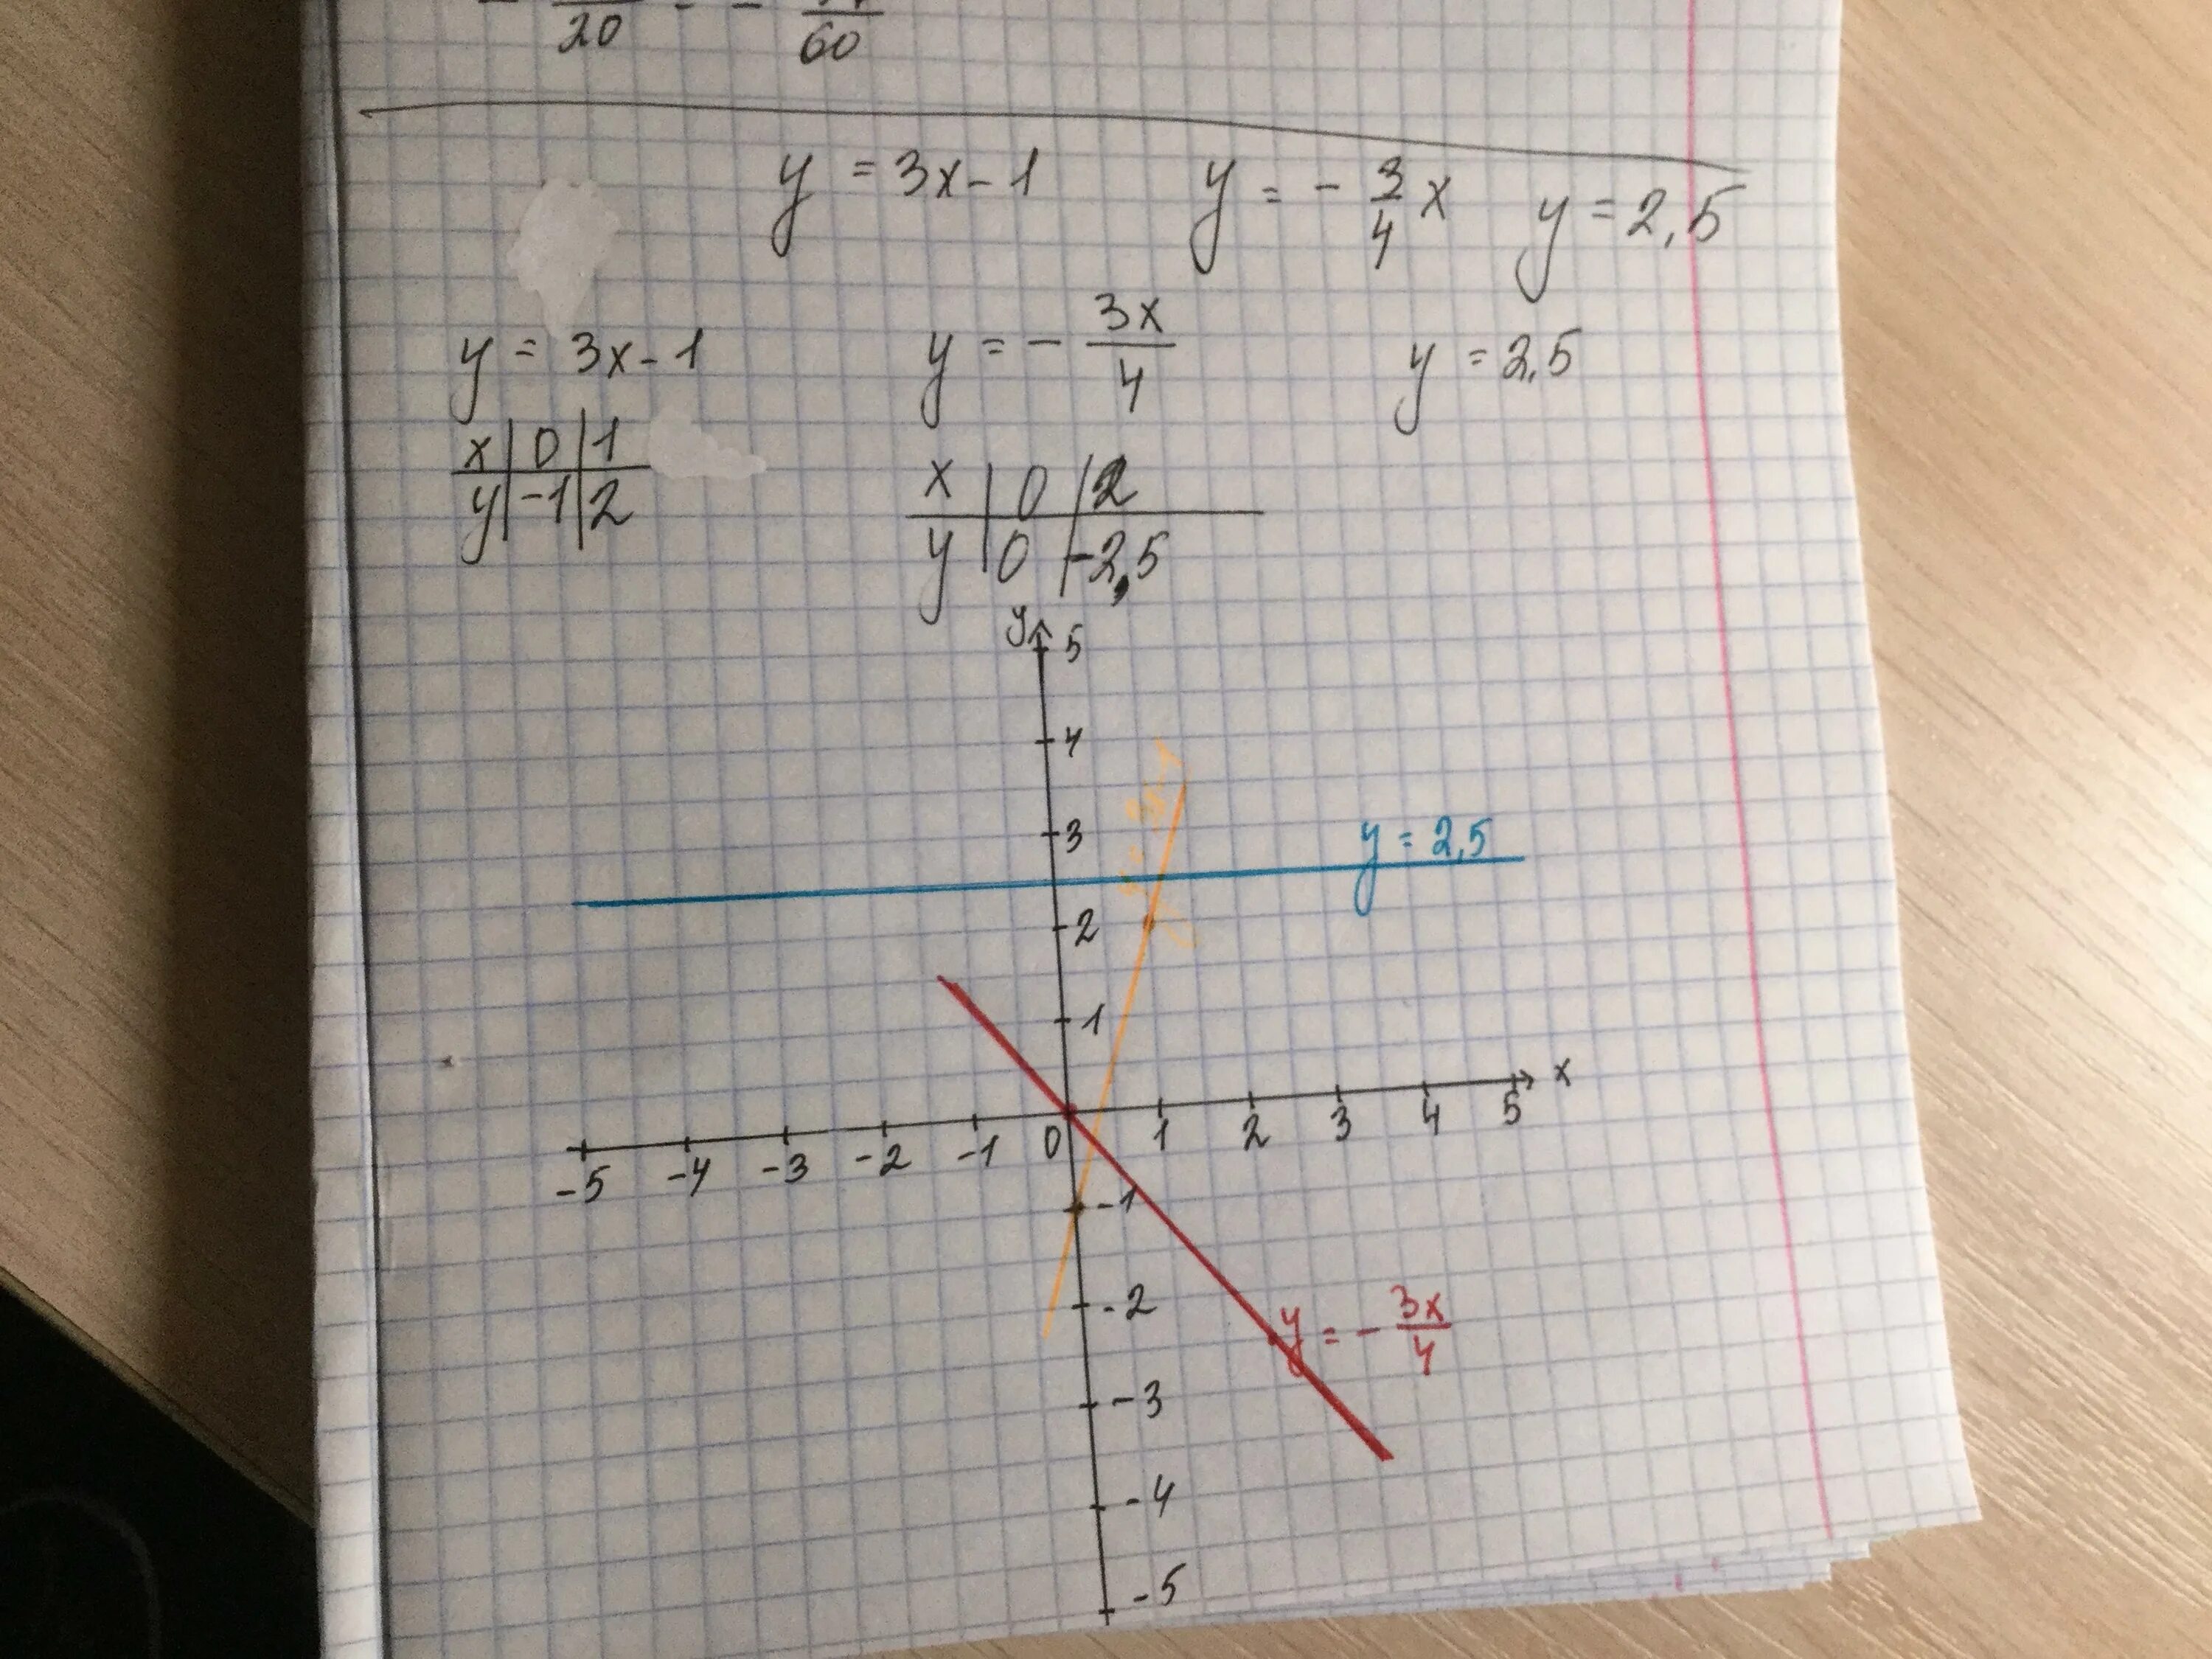 20 - - 60
y = 3x - 1 y = - 3/4 x y = 2,5
y = 3x - 1 y = - 3x/4 y = 2,5
x | 0 | 1
y | -1 | 2
x | 0 | 2
y | 0 | -2,5
y 5
4
3
y = 2,5
2
1
x
-5 -4 -3 -2 -1 0 1 2 3 4 5
-1
-2
y = - 3x/4
-3
-4
-5